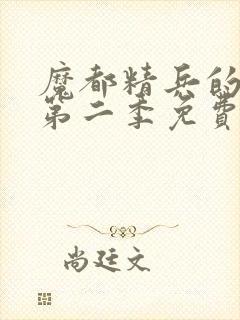 魔都精兵的
第二季免費
尚廷文